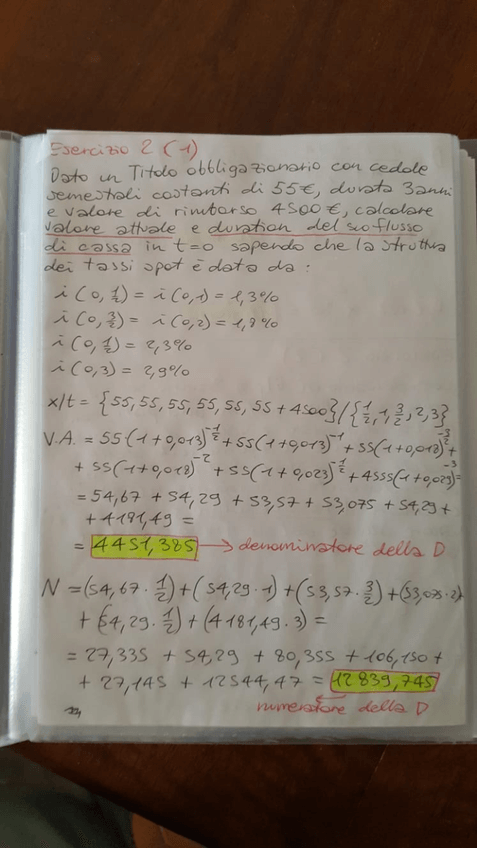 Esercizio 2 (1)
Dato un Titolo obbligazionario con cedole
semestrali costanti di 55€, durata 3 anni
e valore di rimborso 4500€, calcolare
valore attuale e duration del suo flusso
di cassa in t=0 sapendo che la struttura
dei tassi spot è data da:
i(0,½) = i(0,1) = 1,3%
i(0,3/2) = i(0,2) = 1,8%
i(0,½) = 2,3%
i(0,3) = 2,9%
x/t = {55, 55, 55, 55, 55, 55 + 4500}/{½, 1, 3/2, 2, 3}
V.A. = 55(1+0,013)^-½ + 55(1+0,013)^-1 + 55(1+0,018)^-3/2 +
+ 55(1+0,018)^-2 + 55(1+0,023)^-½ + 4555(1+0,029)^-3 =
= 54,67 + 54,29 + 53,57 + 53,075 + 54,29 +
+ 4181,49 =
= 4451,385 → denominatore della D
N = (54,67 · ½) + (54,29 · 1) + (53,57 · 3/2) + (53,075 · 2)
+ (54,29 · ½) + (4181,49 · 3) =
= 27,335 + 54,29 + 80,355 + 106,150 +
+ 27,145 + 12544,47 = 12839,745
numeratore della D